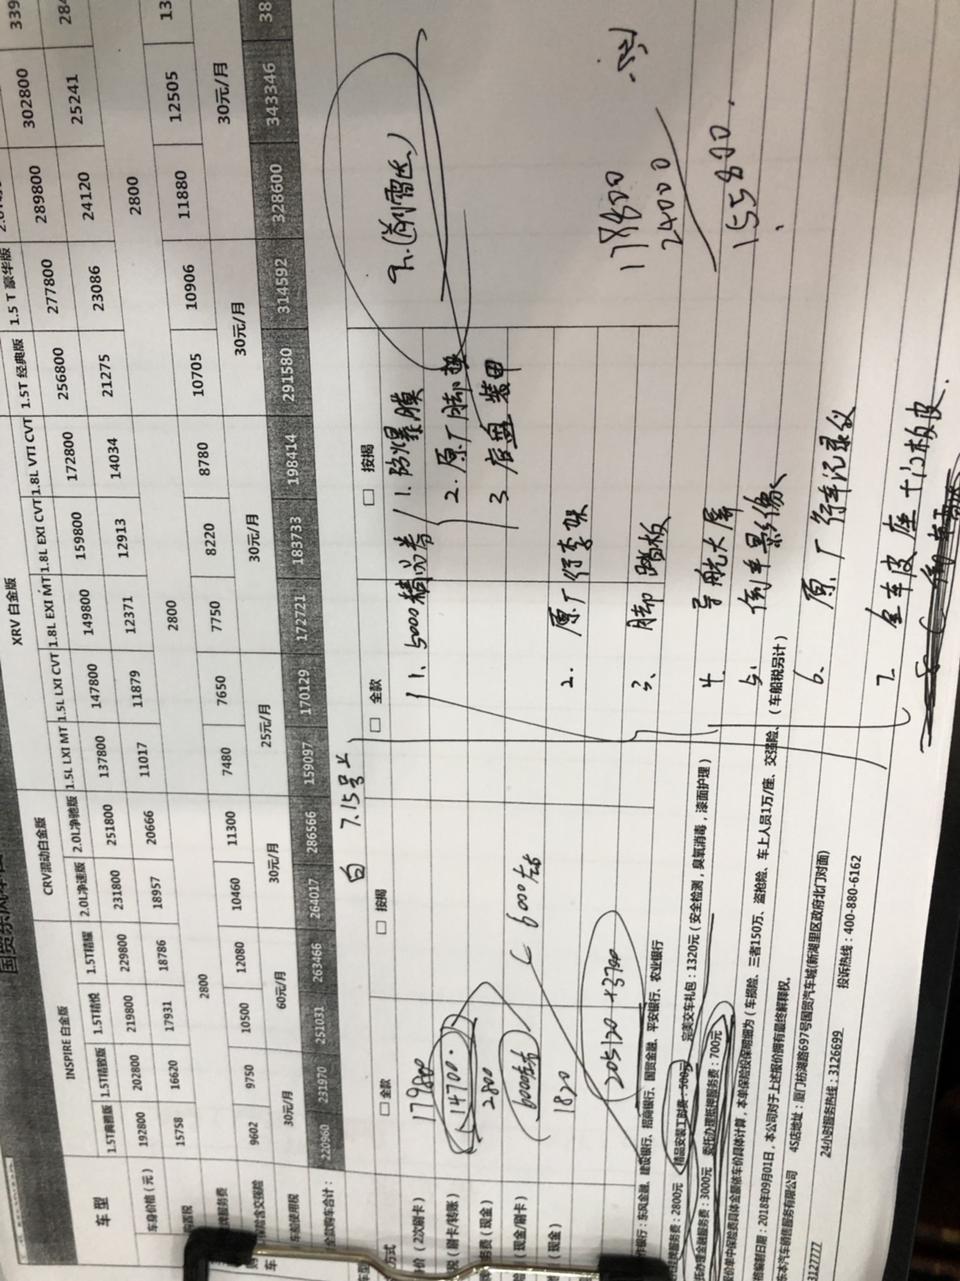 INSPIRE 白金版 CRV混动白金版 XRV 白金版
车 型 1.5T典雅版 1.5T精致版 1.5T精悦 1.5T精耀 2.0L净速版 2.0L净驰版 1.5L LXI MT 1.5L LXI CVT 1.8L EXI MT 1.8L EXI CVT 1.8L VTI CVT 1.5T 经典版 1.5 T 豪华版
车身价格（元） 192800 202800 219800 229800 231800 251800 137800 147800 149800 159800 172800 256800 277800 289800 302800
15758 16620 17931 18786 18957 20666 11017 11879 12371 12913 14034 21275 23086 24120 25241
服务费 2800 2800 2800
9602 9750 10500 12080 10460 11300 7480 7650 7750 8220 8780 10705 10906 11880 12505
车船使用税 30元/月 60元/月 30元/月 25元/月 30元/月 30元/月 30元/月
购车合计： 220960 231970 251031 263466 264017 286566 159097 170129 172721 183733 198414 291580 314592 328600 343346
白 7.15号上
方式 □ 全款 □ 按揭 □ 全款 □ 按揭
价（2次刷卡） 179800
税（刷卡/转账） 14700.
务费（现金） 2800
（现金/刷卡） 6000左右 6000左右
（现金） 1820
205120 +3700
1. 5000精品券 1. 防爆膜
2. 原厂脚垫
3. 底盘装甲
9.(前雷达)
2. 原厂行李架
3、脚踏板
4. 导航大屏
5. 倒车影像
6. 原厂行车记录仪
7. 全车皮座+门板皮
179800
24000
155800.
作银行：东风金融、建设银行、招商银行、国贸金融、平安银行、农业银行
服务费：2800元 精品安装工时费：500元 完美交车礼包：1320元（安全检测，臭氧消毒，漆面护理）
托办理金融服务费：3000元 委托办理抵押服务费：700元
价单中保险费具体金额依车价具体计算，本单保险投保明细为（车损险、三者150万、盗抢险、车上人员1万/座、交强险、（车船税另计）
编制日期：2018年09月01日，本公司对于上述报价拥有最终解释权。
东本汽车销售服务有限公司 4S店地址：厦门枋湖路697号国贸汽车城(新湖里区政府北门对面)
3127777 24小时服务热线：3126699 投诉热线：400-880-6162